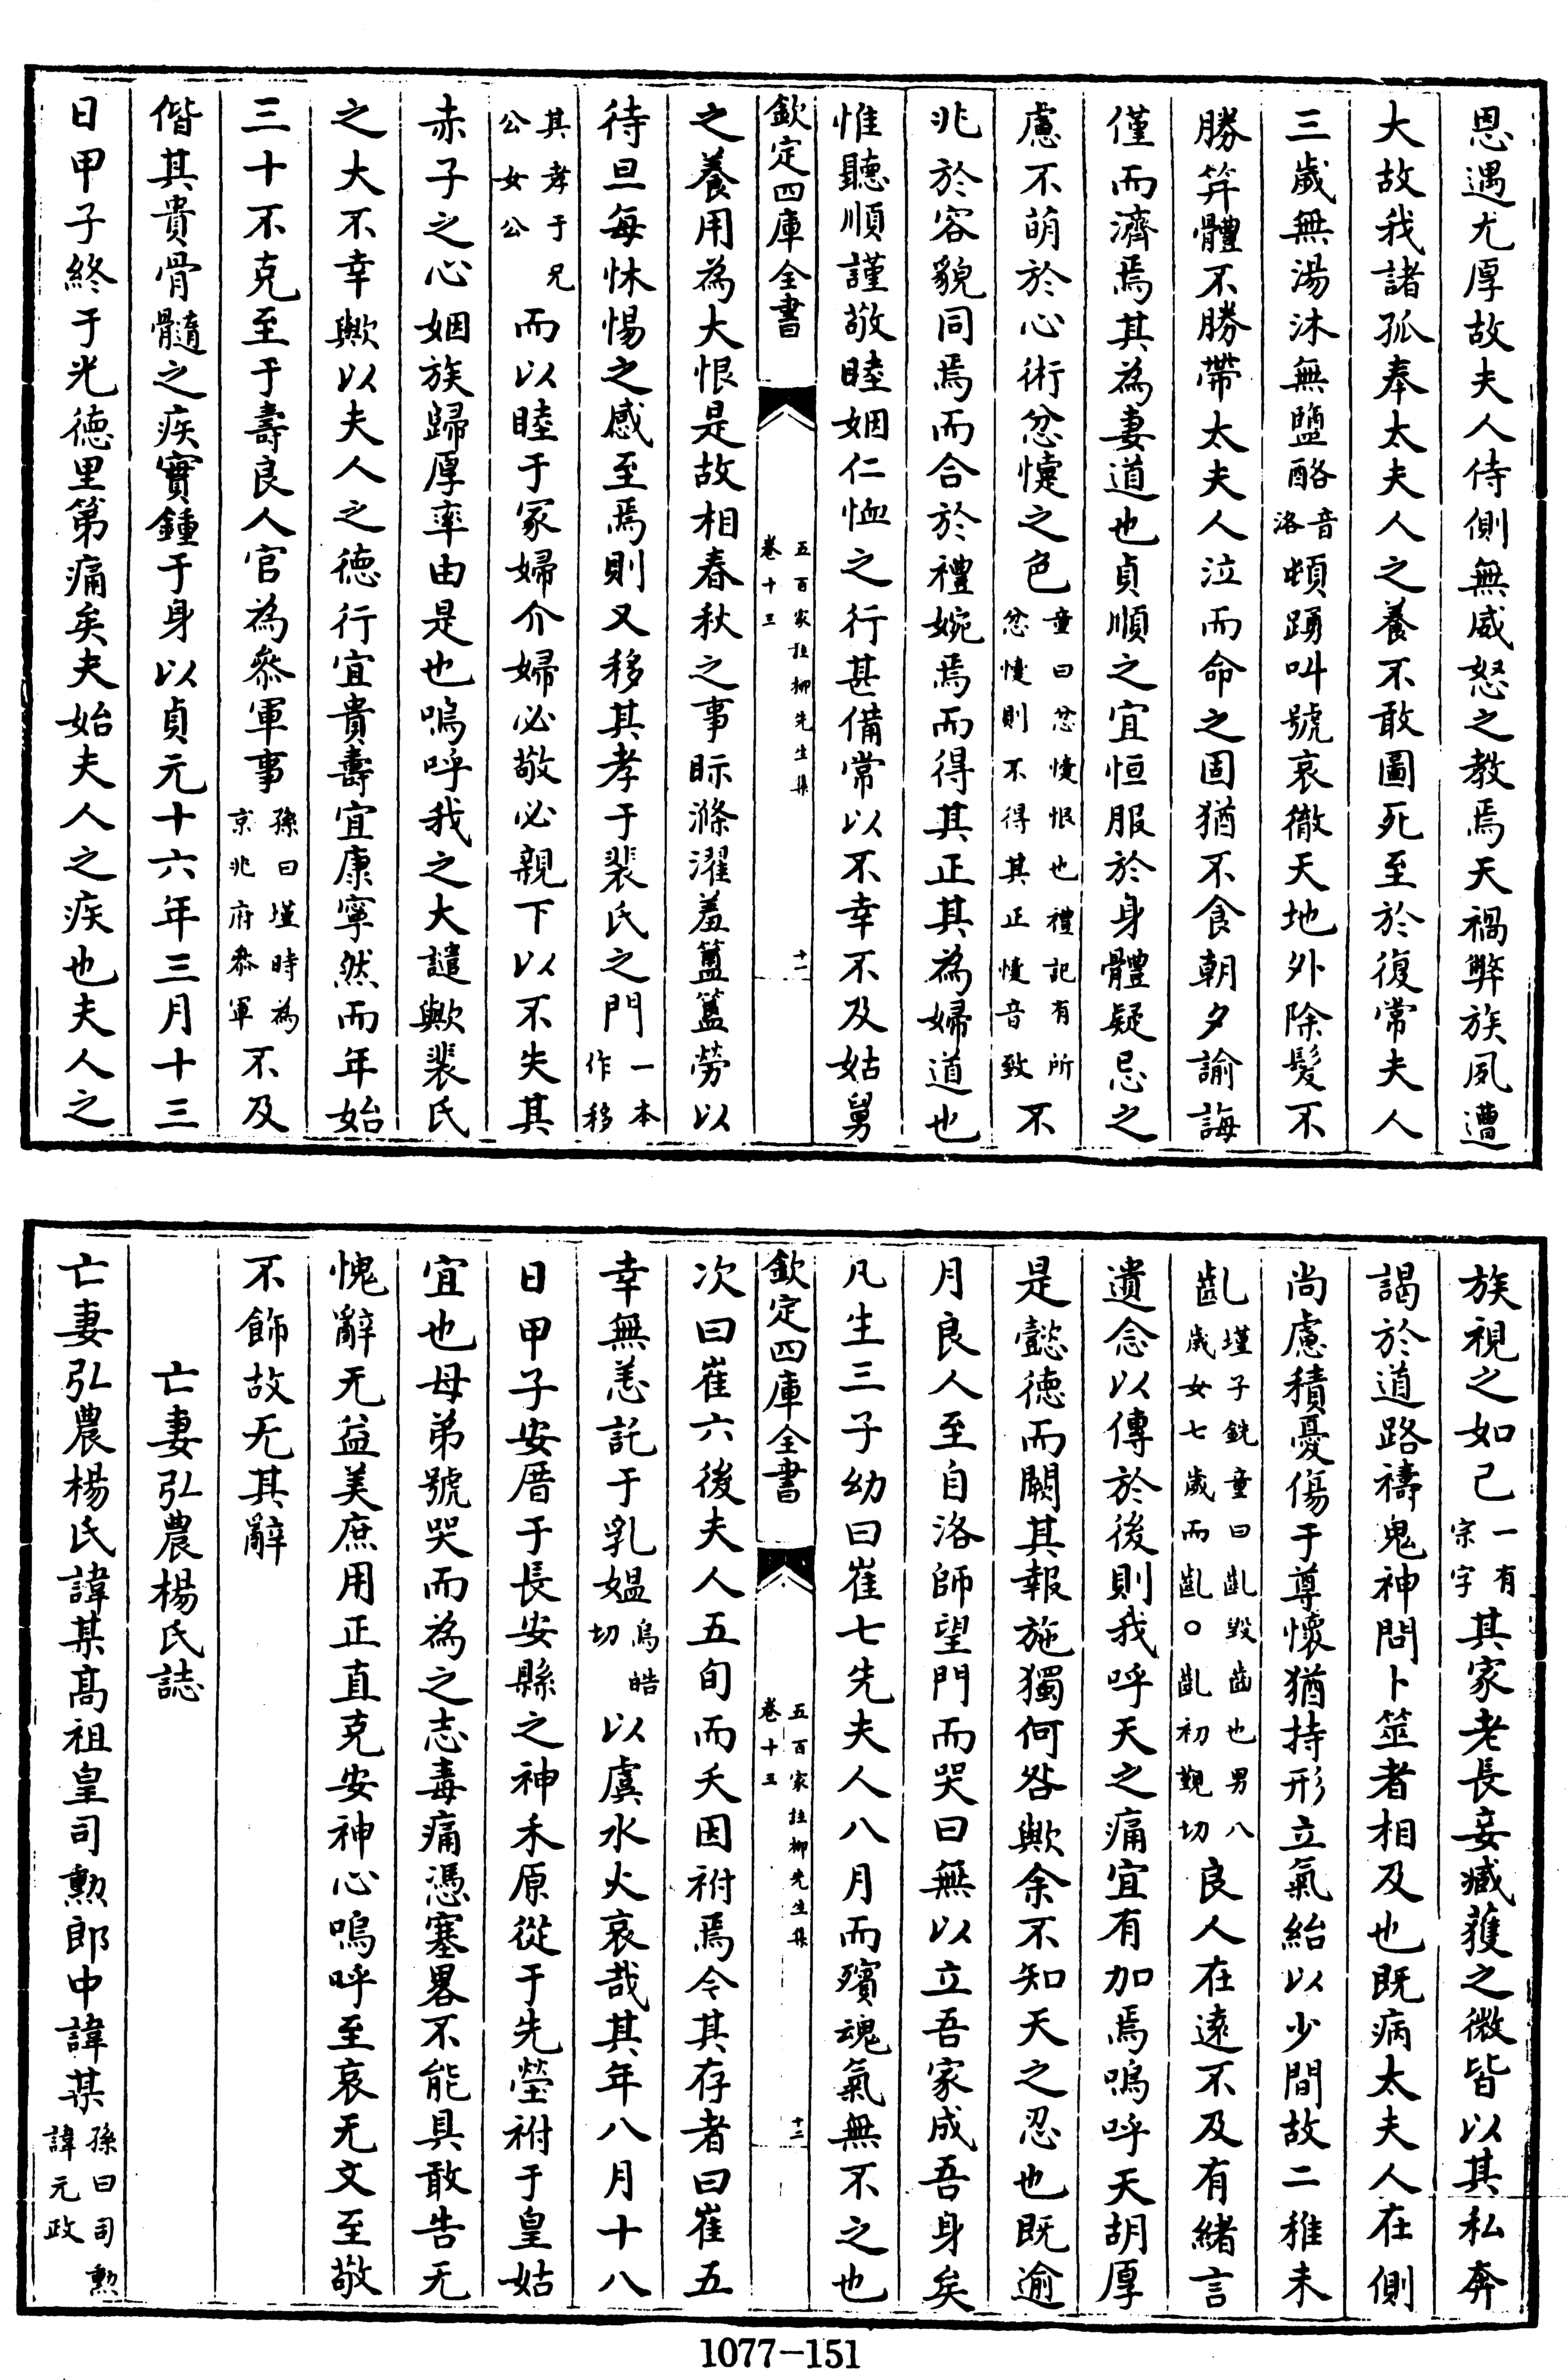 恩遇尤厚故夫人侍側無威怒之教焉天禍弊族夙遭
大故我諸孤奉太夫人之養不敢圖死至於復常夫人
三歲無湯沐無鹽酪音洛頓踴叫號哀徹天地外除髮不
勝笄體不勝帶太夫人泣而命之固猶不食朝夕諭誨
僅而濟焉其為妻道也貞順之宜恒服於身體疑忌之
慮不萌於心術忿懥之色童曰忿懥恨也禮記有所忿懥則不得其正懥音致不
兆於容貌同焉而合於禮婉焉而得其正其為婦道也
惟聽順謹敬睦姻仁恤之行甚備常以不幸不及姑舅
欽定四庫全書
五百家註柳先生集
卷十三
十一
之養用為大恨是故相春秋之事眎滌濯羞簠簋勞以
待旦每怵惕之感至焉則又移其孝于裴氏之門一本作移
其孝于兄公女公而以睦于冢婦介婦必敬必親下以不失其
赤子之心姻族歸厚率由是也嗚呼我之大譴歟裴氏
之大不幸歟以夫人之德行宜貴壽宜康寧然而年始
三十不克至于壽良人官為叅軍事孫曰墐時為京兆府叅軍不及
偕其貴骨髓之疾實鍾于身以貞元十六年三月十三
日甲子終于光德里第痛矣夫始夫人之疾也夫人之
族視之如己一有宗字其家老長妾臧獲之微皆以其私奔
謁於道路禱鬼神問卜筮者相及也既病太夫人在側
尚慮積憂傷于尊懷猶持形立氣紿以少間故二稚未
齔墐子銑童曰齔毀齒也男八歲女七歲而齔○齔初覲切良人在遠不及有緒言
遺念以傳於後則我呼天之痛宜有加焉嗚呼天胡厚
是懿德而闕其報施獨何咎歟余不知天之忍也既逾
月良人至自洛師望門而哭曰無以立吾家成吾身矣
凡生三子幼曰崔七先夫人八月而殯魂氣無不之也
欽定四庫全書
五百家註柳先生集
卷十三
十二
次曰崔六後夫人五旬而夭因祔焉今其存者曰崔五
幸無恙託于乳媼烏皓切以虞水火哀哉其年八月十八
日甲子安厝于長安縣之神禾原從于先塋祔于皇姑
宜也母弟號哭而為之志毒痛憑塞畧不能具敢告无
愧辭无益美庶用正直克安神心嗚呼至哀无文至敬
不飾故无其辭
亡妻弘農楊氏誌
亡妻弘農楊氏諱某髙祖皇司勲郎中諱某孫曰司勲諱元政
1077-151